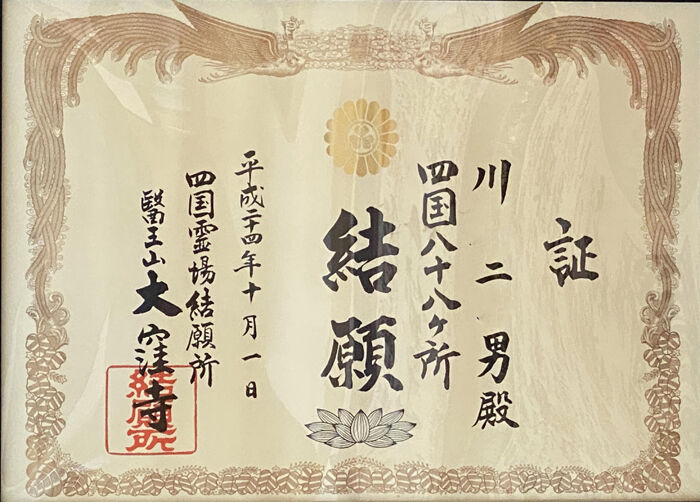 証
川二男殿
四国八十八ヶ所
結願
平成二十四年十月一日
四国霊場結願所
醫王山大窪寺
結願所